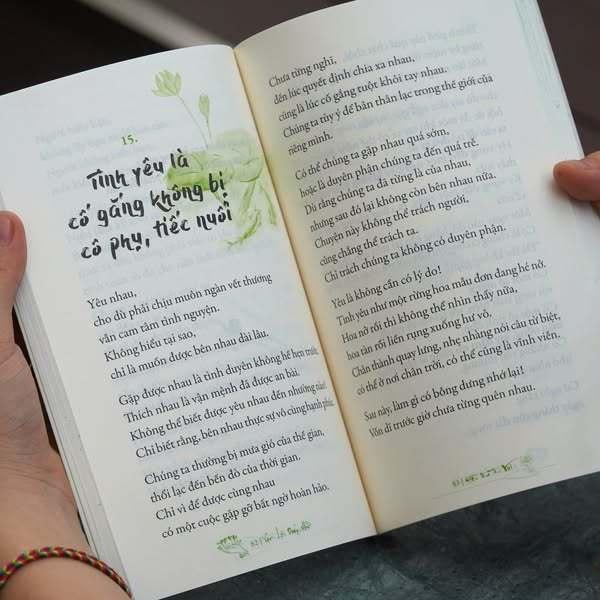 15.
Tình yêu là
cố gắng không bị
cô phụ, tiếc nuối
Yêu nhau,
cho dù phải chịu muôn ngàn vết thương
vẫn cam tâm tình nguyện.
Không hiểu tại sao,
chỉ là muốn được bên nhau dài lâu.
Gặp được nhau là tình duyên không hề hẹn trước,
Thích nhau là vận mệnh đã được an bài.
Không thể biết được yêu nhau đến nhường nào!
Chỉ biết rằng, bên nhau thực sự vô cùng hạnh phúc.
Chúng ta thường bị mưa gió của thế gian,
thổi lạc đến bến đò của thời gian.
Chỉ vì để được cùng nhau
có một cuộc gặp gỡ bất ngờ hoàn hảo.
Chưa từng nghĩ,
đến lúc quyết định chia xa nhau,
cũng là lúc cố gắng tuột khỏi tay nhau.
Chúng ta tùy ý để bản thân lạc trong thế giới của
riêng mình.
Có thể chúng ta gặp nhau quá sớm,
hoặc là duyên phận chúng ta đến quá trễ.
Dù rằng chúng ta đã từng là của nhau,
nhưng sau đó lại không còn bên nhau nữa.
Chuyện này không thể trách người,
cũng chẳng thể trách ta.
Chỉ trách chúng ta không có duyên phận.
Yêu là không cần có lý do!
Tình yêu như một rừng hoa mẫu đơn đang hé nở,
Hoa nở rồi thì không thể nhìn thấy nữa,
hoa tàn rồi liền rụng xuống hư vô,
Chân thành quay lưng, nhẹ nhàng nói câu từ biệt,
có thể ở nơi chân trời, có thể cũng là vĩnh viễn.
Sau này, làm gì có bỗng dưng nhớ lại!
Vốn dĩ trước giờ chưa từng quên nhau.